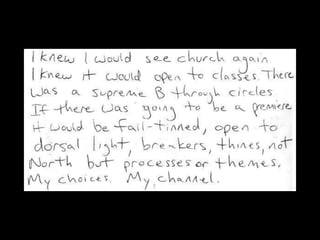 I knew I would see church again
I knew it would open to classes. There
was a supreme B through circles
If there was going to be a premiere
it would be fail-tinned, open to
dorsal light, breakers, thines, not
North but processes or themes.
My choices. My channel.